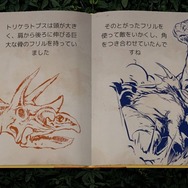 トリケラトプスは頭が大き
く、肩から後ろに伸びる巨
大な骨のフリルを持ってい
ました
そのとがったフリルを
使って敵をいかくし、角
をつき合わせていたんで
すね